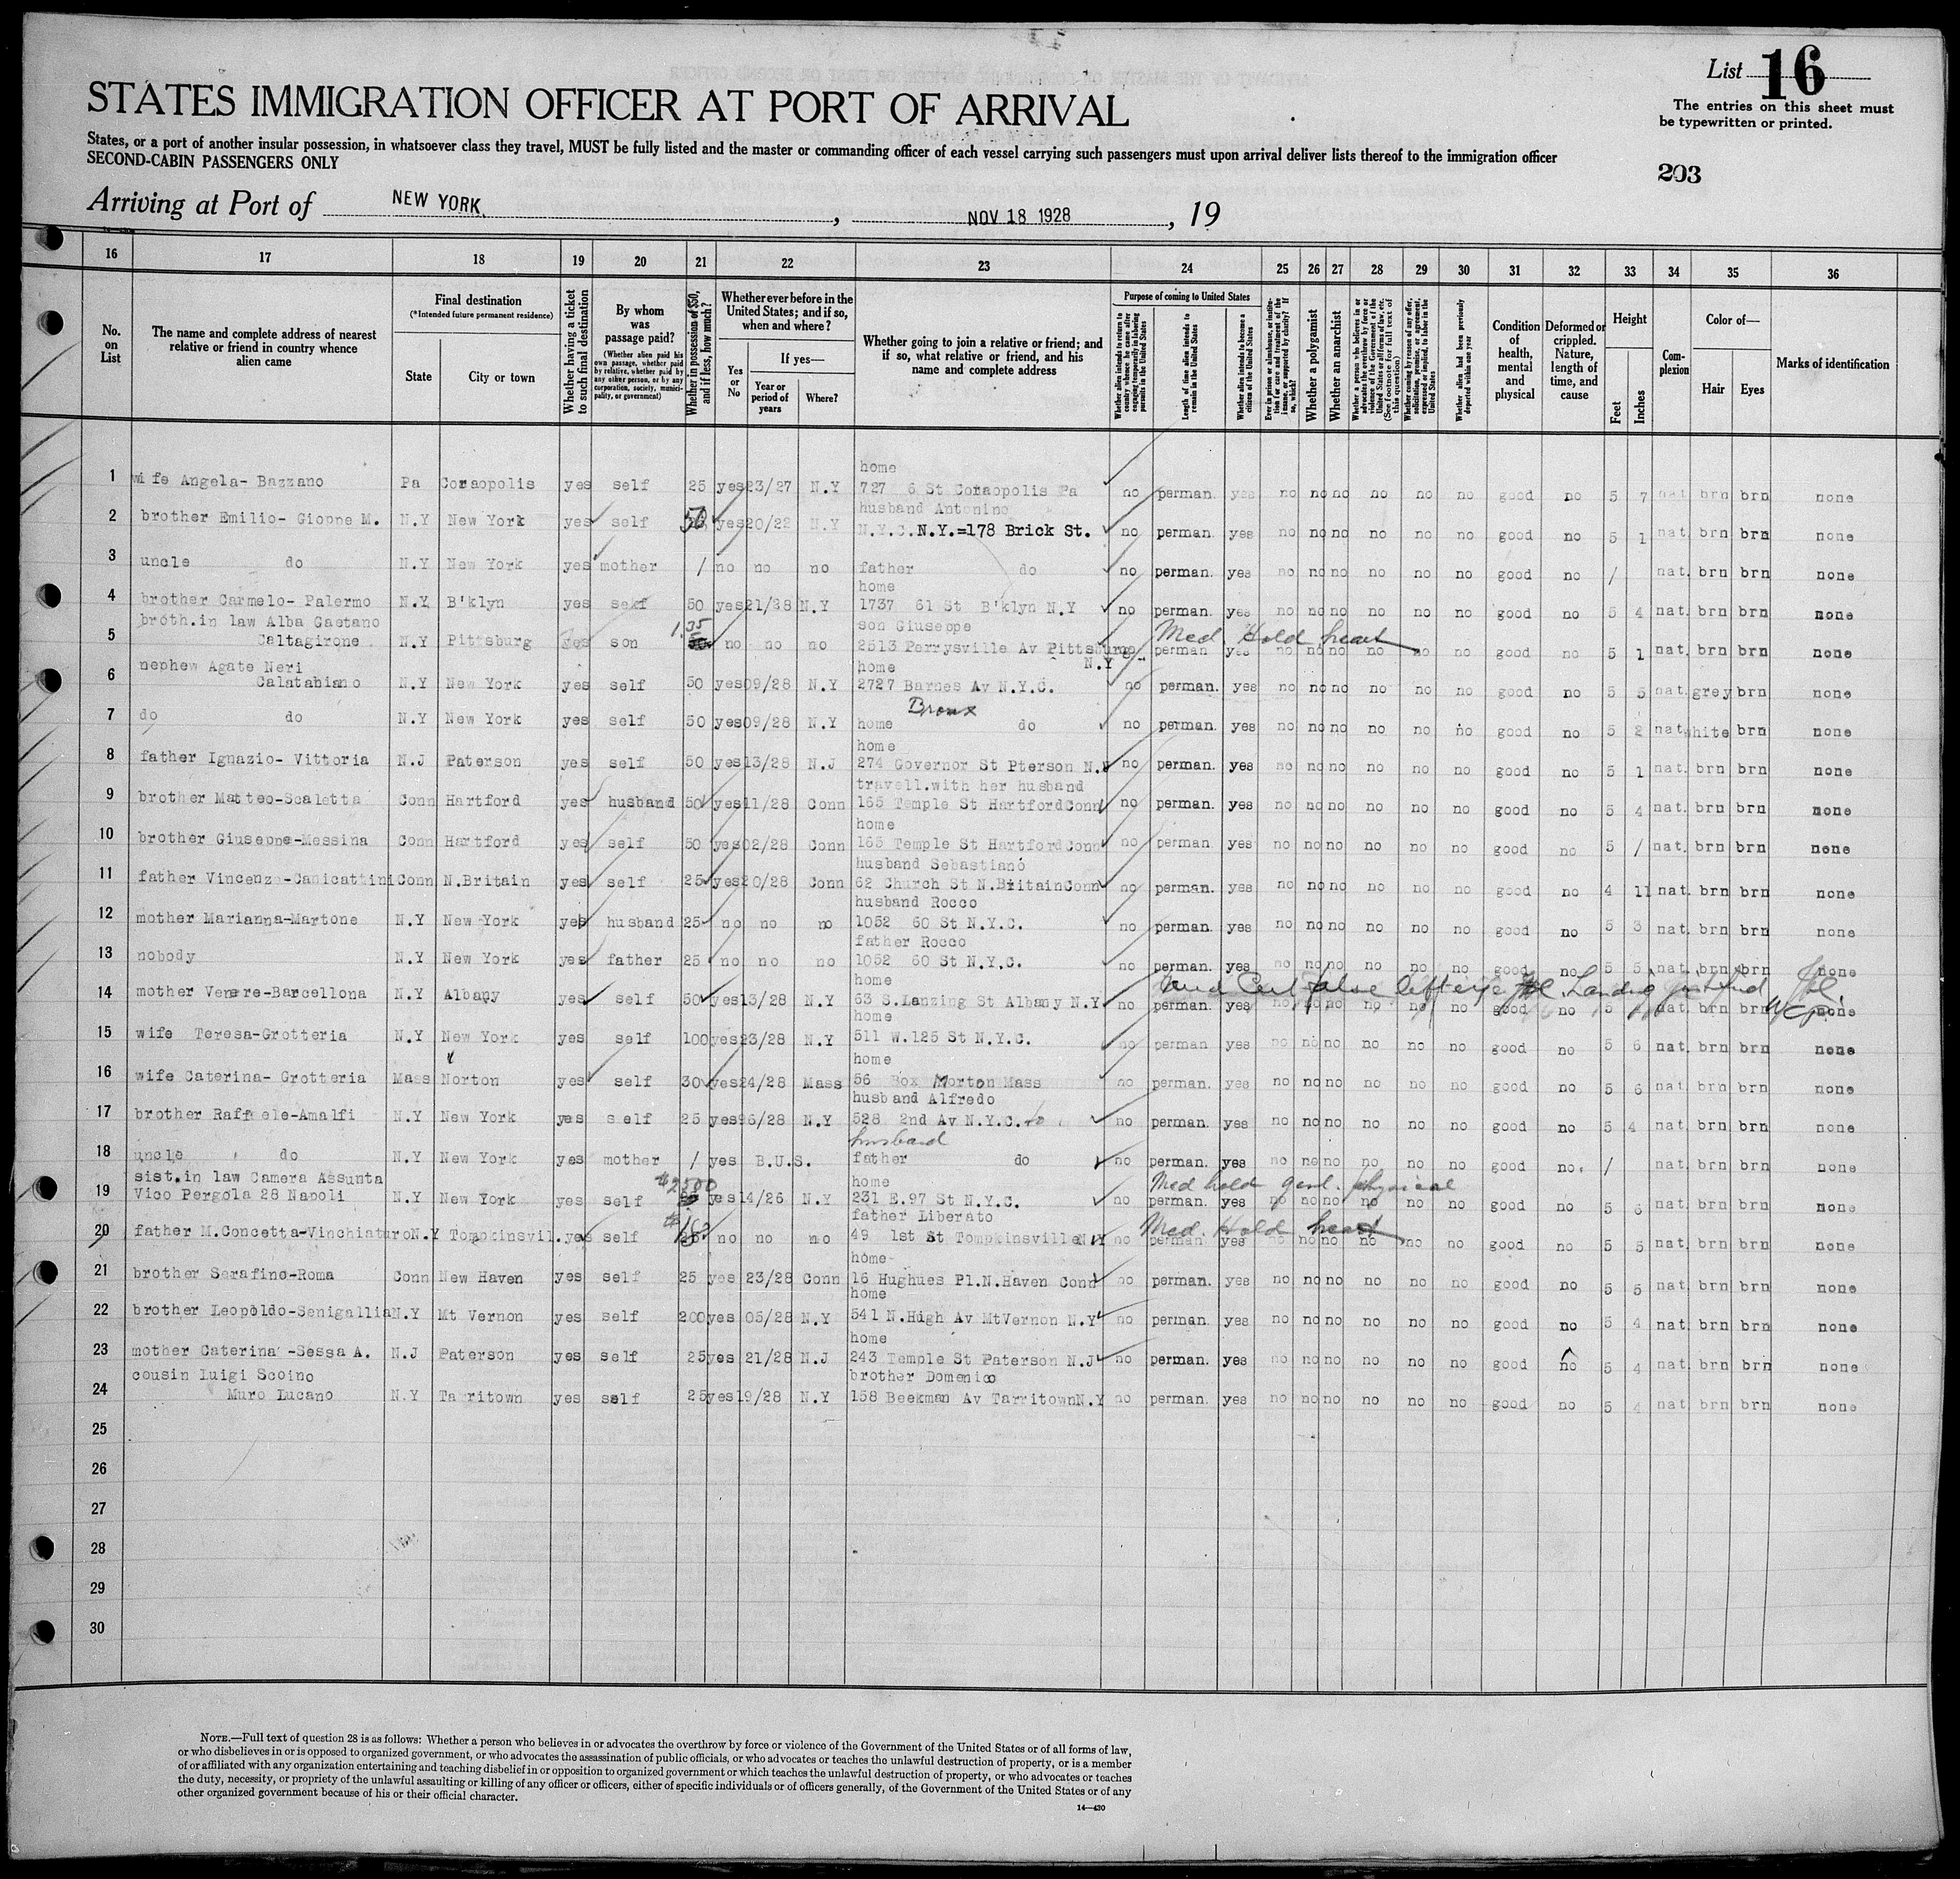 List 16
The entries on this sheet must
be typewritten or printed.
STATES IMMIGRATION OFFICER AT PORT OF ARRIVAL
States, or a port of another insular possession, in whatsoever class they travel, MUST be fully listed and the master or commanding officer of each vessel carrying such passengers must upon arrival deliver lists thereof to the immigration officer
SECOND-CABIN PASSENGERS ONLY
203
Arriving at Port of NEW YORK, NOV 18 1928, 19
16 17 18 19 20 21 22 23 24 25 26 27 28 29 30 31 32 33 34 35 36
No. on List
The name and complete address of nearest relative or friend in country whence alien came
Final destination
(*Intended future permanent residence)
State
City or town
Whether having a ticket to such final destination
By whom was passage paid?
(Whether alien paid his own passage, whether paid by relative, whether paid by any other person, or by any corporation, society, municipality, or government)
Whether in possession of $50, and if less, how much?
Whether ever before in the United States; and if so, when and where?
Yes or No
If yes—
Year or period of years
Where?
Whether going to join a relative or friend; and if so, what relative or friend, and his name and complete address
Purpose of coming to United States
Whether alien intends to return to country whence he came after engaging temporarily in laboring pursuits in the United States
Length of time alien intends to remain in the United States
Whether alien intends to become a citizen of the United States
Ever in prison or almshouse, or institution for care and treatment of the insane, or supported by charity? If so, which?
Whether a polygamist
Whether an anarchist
Whether a person who believes in or advocates the overthrow by force or violence of the Government of the United States or all forms of law, etc. (See footnote for full text of this question)
Whether coming by reason of any offer, solicitation, promise, or agreement, expressed or implied, to labor in the United States
Whether alien had been previously deported within one year
Condition of health, mental and physical
Deformed or crippled. Nature, length of time, and cause
Height
Feet
Inches
Complexion
Color of—
Hair
Eyes
Marks of identification
home
1 wife Angela- Bazzano Pa Coraopolis yes self 25 yes 23/27 N.Y 727 6 St Coraopolis Pa no perman. yes no no no no no no good no 5 7 nat brn brn none
husband Antonino
2 brother Emilio- Gioppe M. N.Y New York yes self 50 yes 20/22 N.Y N.Y.C. N.Y.=178 Brick St. no perman. yes no no no no no no good no 5 1 nat. brn brn none
3 uncle do N.Y New York yes mother / no no no father do no perman. yes no no no no no no good no / nat. brn brn none
home
4 brother Carmelo- Palermo N.Y. B'klyn yes self 50 yes 21/28 N.Y 1737 61 St B'klyn N.Y no perman. yes no no no no no no good no 5 4 nat. brn brn none
broth.in law Alba Gaetano 1.35 son Giuseppe Med. Hold heart
5 Caltagirone N.Y Pittsburg yes son no no no 2513 Perrysville Av Pittsburg perman yes no no no no no no good no 5 1 nat. brn brn none
nephew Agate Neri home N.Y
6 Calatabiano N.Y New York yes self 50 yes 09/28 N.Y 2727 Barnes Av N.Y.C. no perman. yes no no no no no no good no 5 5 nat. grey brn none
Bronx
7 do do N.Y New York yes self 50 yes 09/28 N.Y home do no perman. yes no no no no no no good no 5 2 nat. white brn none
home
8 father Ignazio- Vittoria N.J Paterson yes self 50 yes 13/28 N.J 274 Governor St Pterson N.J no perman. yes no no no no no no good no 5 1 nat. brn brn none
travell.with her husband
9 brother Matteo-Scaletta Conn Hartford yes husband 50 yes 11/28 Conn 165 Temple St Hartford Conn no perman. yes no no no no no no good no 5 4 nat. brn brn none
home
10 brother Giuseppe-Messina Conn Hartford yes self 50 yes 02/28 Conn 165 Temple St Hartford Conn no perman. yes no no no no no no good no 5 / nat. brn brn none
husband Sebastiano
11 father Vincenzo-Canicattini Conn N.Britain yes self 25 yes 20/28 Conn 62 Church St N.Britain Conn no perman. yes no no no no no no good no 4 11 nat. brn brn none
husband Rocco
12 mother Marianna-Martone N.Y New York yes husband 25 no no no 1052 60 St N.Y.C. no perman. yes no no no no no no good no 5 3 nat. brn brn none
father Rocco
13 nobody N.Y New York yes father 25 no no no 1052 60 St N.Y.C. no perman. yes no no no no no no good no 5 5 nat. brn brn none
home Cert false left eye Landed
14 mother Venere-Barcellona N.Y Albany yes self 50 yes 13/28 N.Y 63 S.Lanzing St Albany N.Y no perman. yes no no no no no no good no 5 nat. brn brn none
home
15 wife Teresa-Grotteria N.Y New York yes self 100 yes 23/28 N.Y 511 W.125 St N.Y.C. no perman yes no no no no no no good no 5 6 nat. brn brn none
home
16 wife Caterina- Grotteria Mass Norton yes self 30 yes 24/28 Mass 56 Box Morton Mass no perman. yes no no no no no no good no 5 6 nat. brn brn none
husband Alfredo
17 brother Raffaele-Amalfi N.Y New York yes self 25 yes 26/28 N.Y 528 2nd Av N.Y.C. to no perman. yes no no no no no no good no 5 4 nat. brn brn none
husband
18 uncle do N.Y New York yes mother / yes B.U.S. father do no perman. yes no no no no no no good no. / nat. brn brn none
sist.in law Camera Assunta $2500 home Med hold genl. physical
19 Vico Pergola 28 Napoli N.Y New York yes self yes 14/26 N.Y 231 E.97 St N.Y.C. no perman. yes no no no no no no good no 5 nat. brn brn none
father Liberato Med. Hold heart
20 father M.Concetta-Vinchiaturo N.Y Tompkinsvil. yes self no no no 49 1st St Tompkinsville N.Y no perman. yes no no no no no no good no 5 5 nat. brn brn none
home
21 brother Serafino-Roma Conn New Haven yes self 25 yes 23/28 Conn 16 Hughues Pl.N.Haven Conn no perman. yes no no no no no no good no 5 5 nat. brn brn none
home
22 brother Leopoldo-Senigallia N.Y Mt Vernon yes self 200 yes 05/28 N.Y 541 N.High Av MtVernon N.Y no perman. yes no no no no no no good no 5 4 nat. brn brn none
home
23 mother Caterina -Sessa A. N.J Paterson yes self 25 yes 21/28 N.J 243 Temple St Paterson N.J no perman. yes no no no no no no good no 5 4 nat. brn brn none
cousin Luigi Scoino brother Domenico
24 Muro Lucano N.Y Tarritown yes self 25 yes 19/28 N.Y 158 Beekman Av Tarritown N.Y no perman. yes no no no no no no good no 5 4 nat. brn brn none
25
26
27
28
29
30
NOTE.—Full text of question 28 is as follows: Whether a person who believes in or advocates the overthrow by force or violence of the Government of the United States or of all forms of law,
or who disbelieves in or is opposed to organized government, or who advocates the assassination of public officials, or who advocates or teaches the unlawful destruction of property, or is a member
of or affiliated with any organization entertaining and teaching disbelief in or opposition to organized government or which teaches the unlawful destruction of property, or who advocates or teaches
the duty, necessity, or propriety of the unlawful assaulting or killing of any officer or officers, either of specific individuals or of officers generally, of the Government of the United States or of any
other organized government because of his or their official character.
14—430